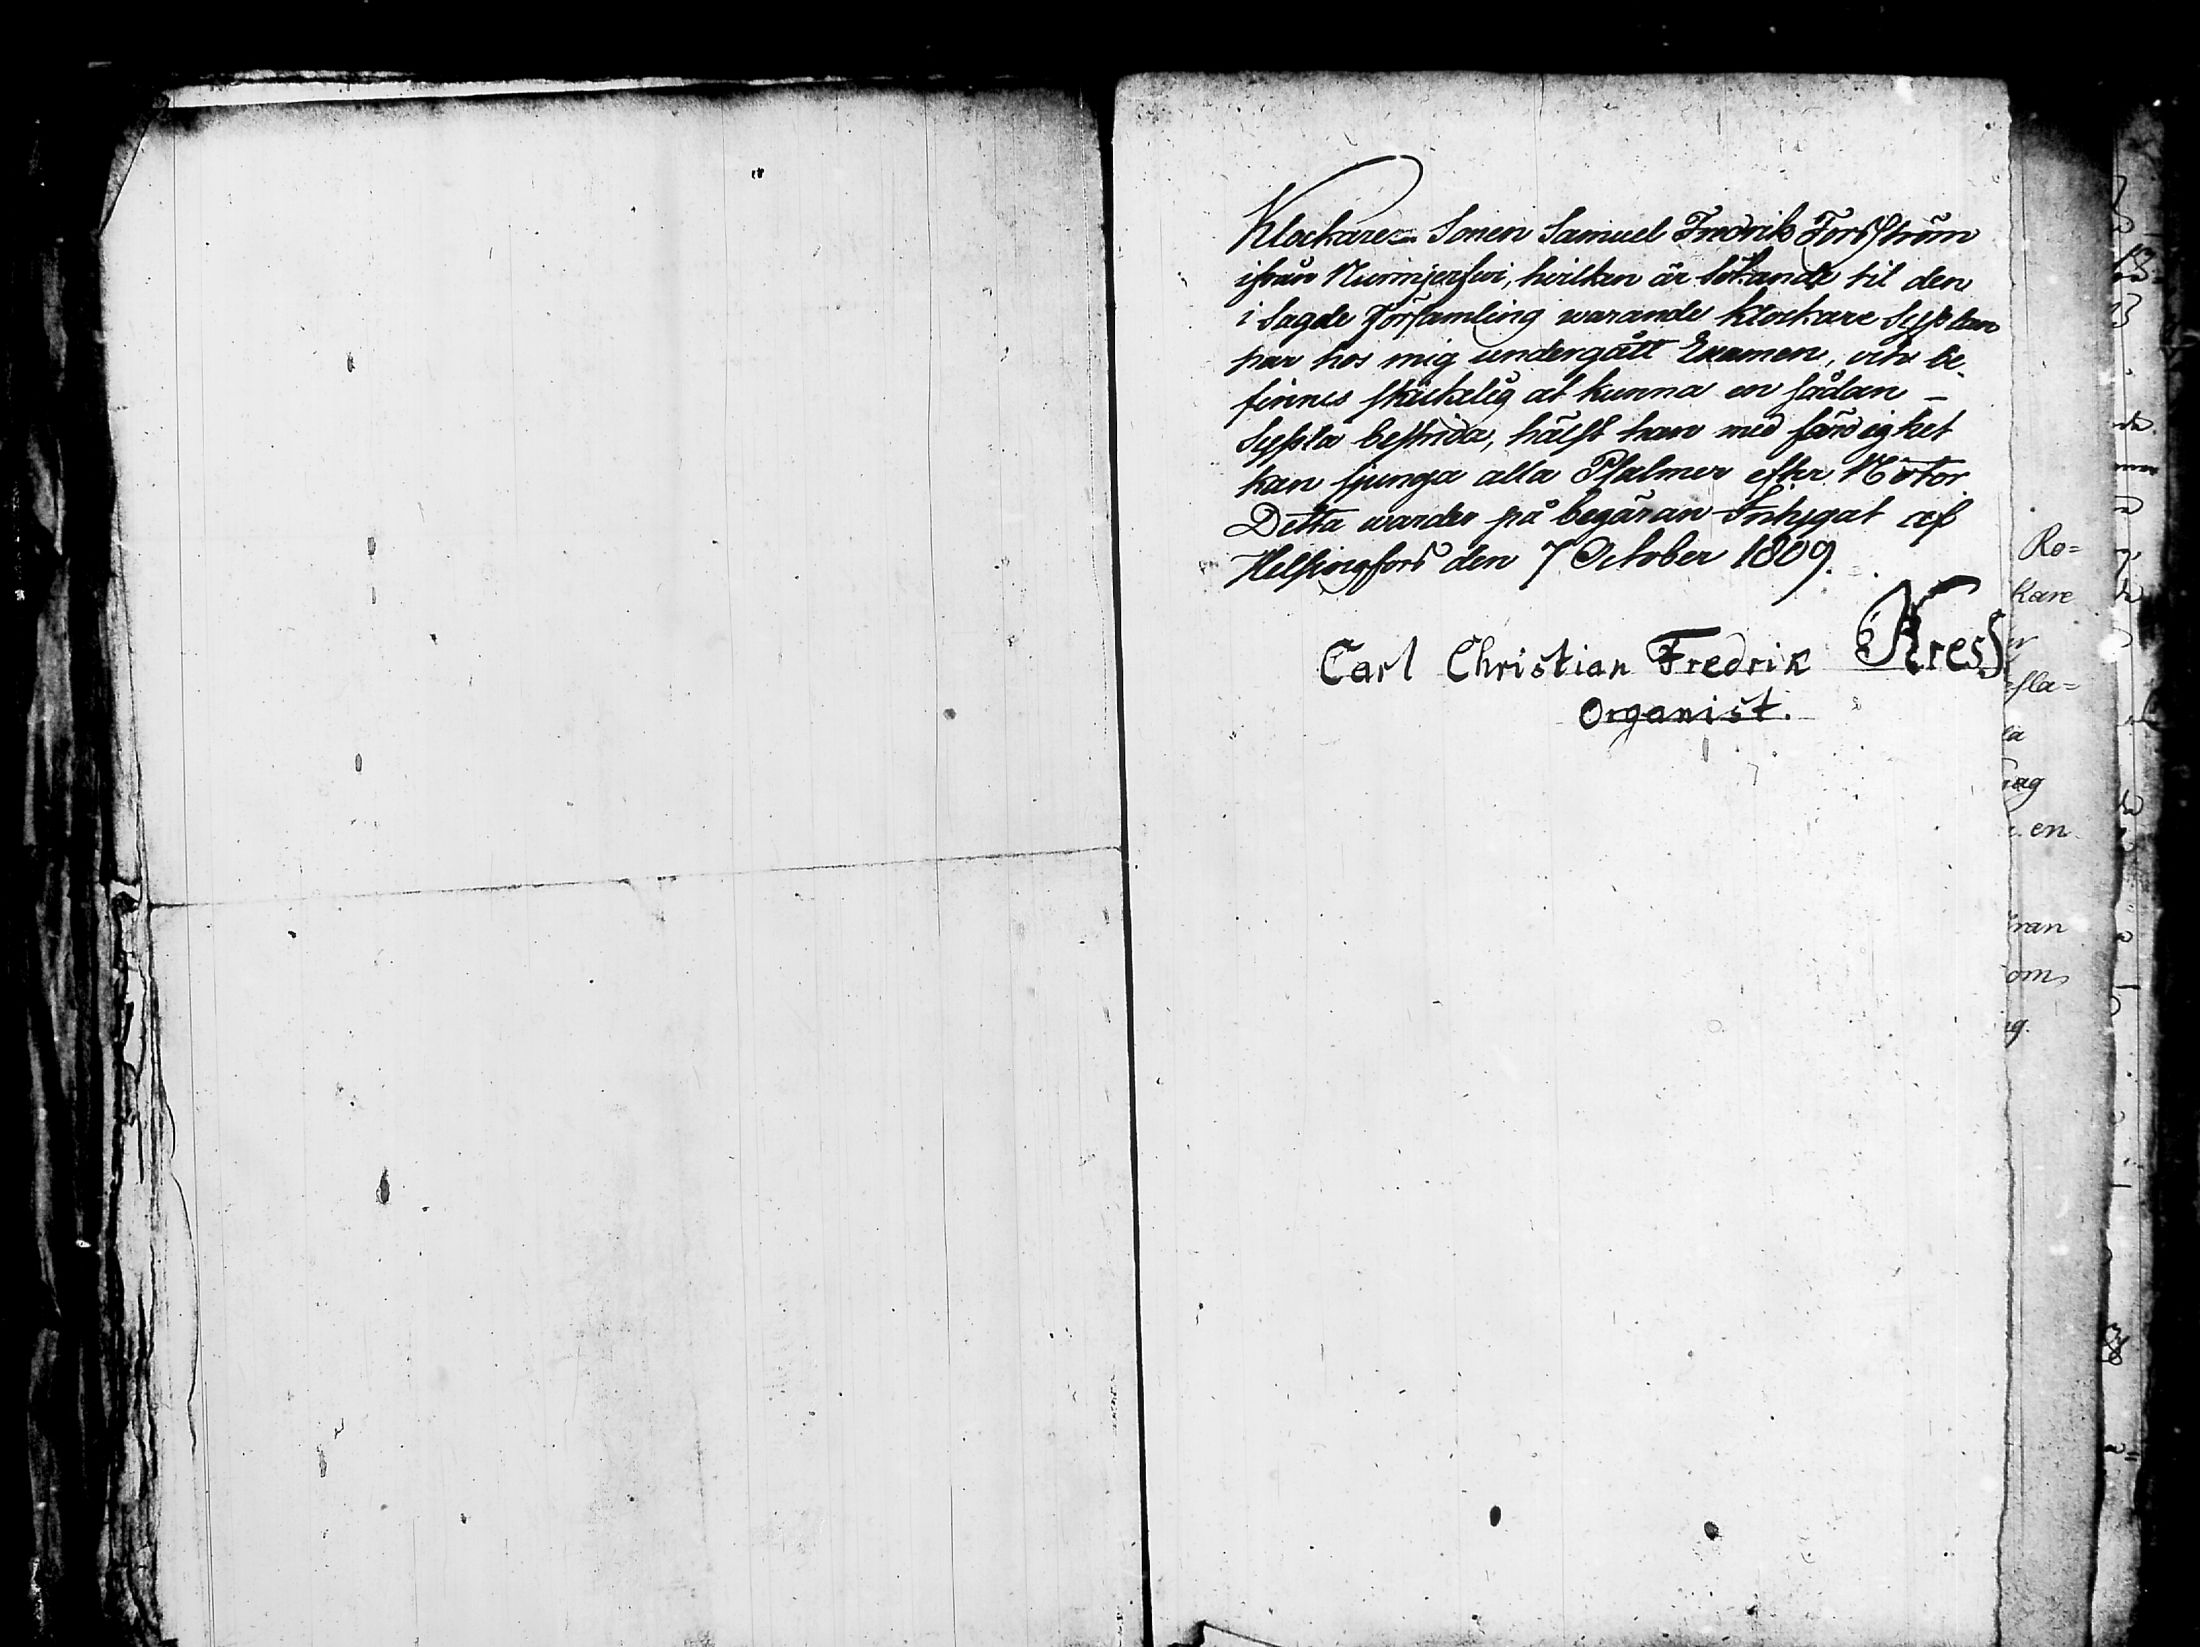 Klockare Sonen Samuel Fredrik Forsström
ifrån Nurmijerfwi, hvilken är sökande til den
i Sagde Församling warande Klockare Syslan
har hos mig undergått Examen, och be
finnes skickelig at kunna en sådan –
Sysla bestrida, hälst han med färdighet
kan sjunga alla Psalmer efter Notor
Detta warder på begäran Intygat af
Helsingfors den 7 October 1809.
Carl Christian Fredrik Kress
Organist.
Ro=
kare
sla=
en